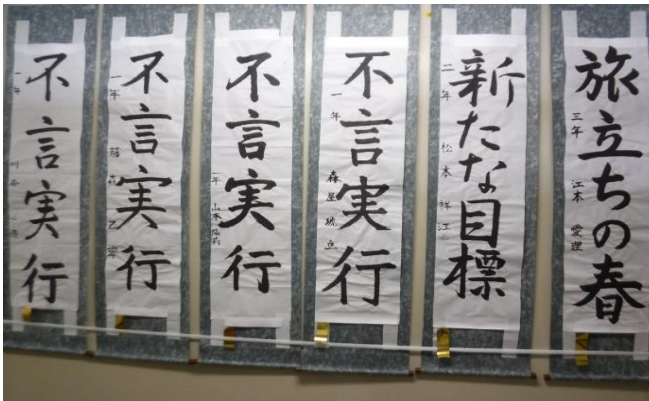 旅立ちの春
三年 江本 愛理
新たな目標
二年 松本 祥江
不言実行
一年
不言実行
一年 山本
不言実行
一年 藤森
不言実行
一年